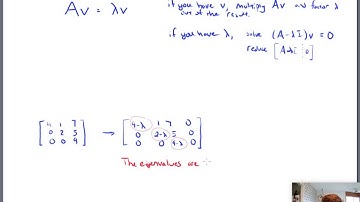 Av = λv
if you have v, multiply Av and factor λ
out of the result.
if you have λ, solve (A-λI)v=0
reduce [A-λI | 0]
[4 1 7
0 2 5
0 0 9] → [4-λ 1 7 0
0 2-λ 5 0
0 0 9-λ 0]
The eigenvalues are